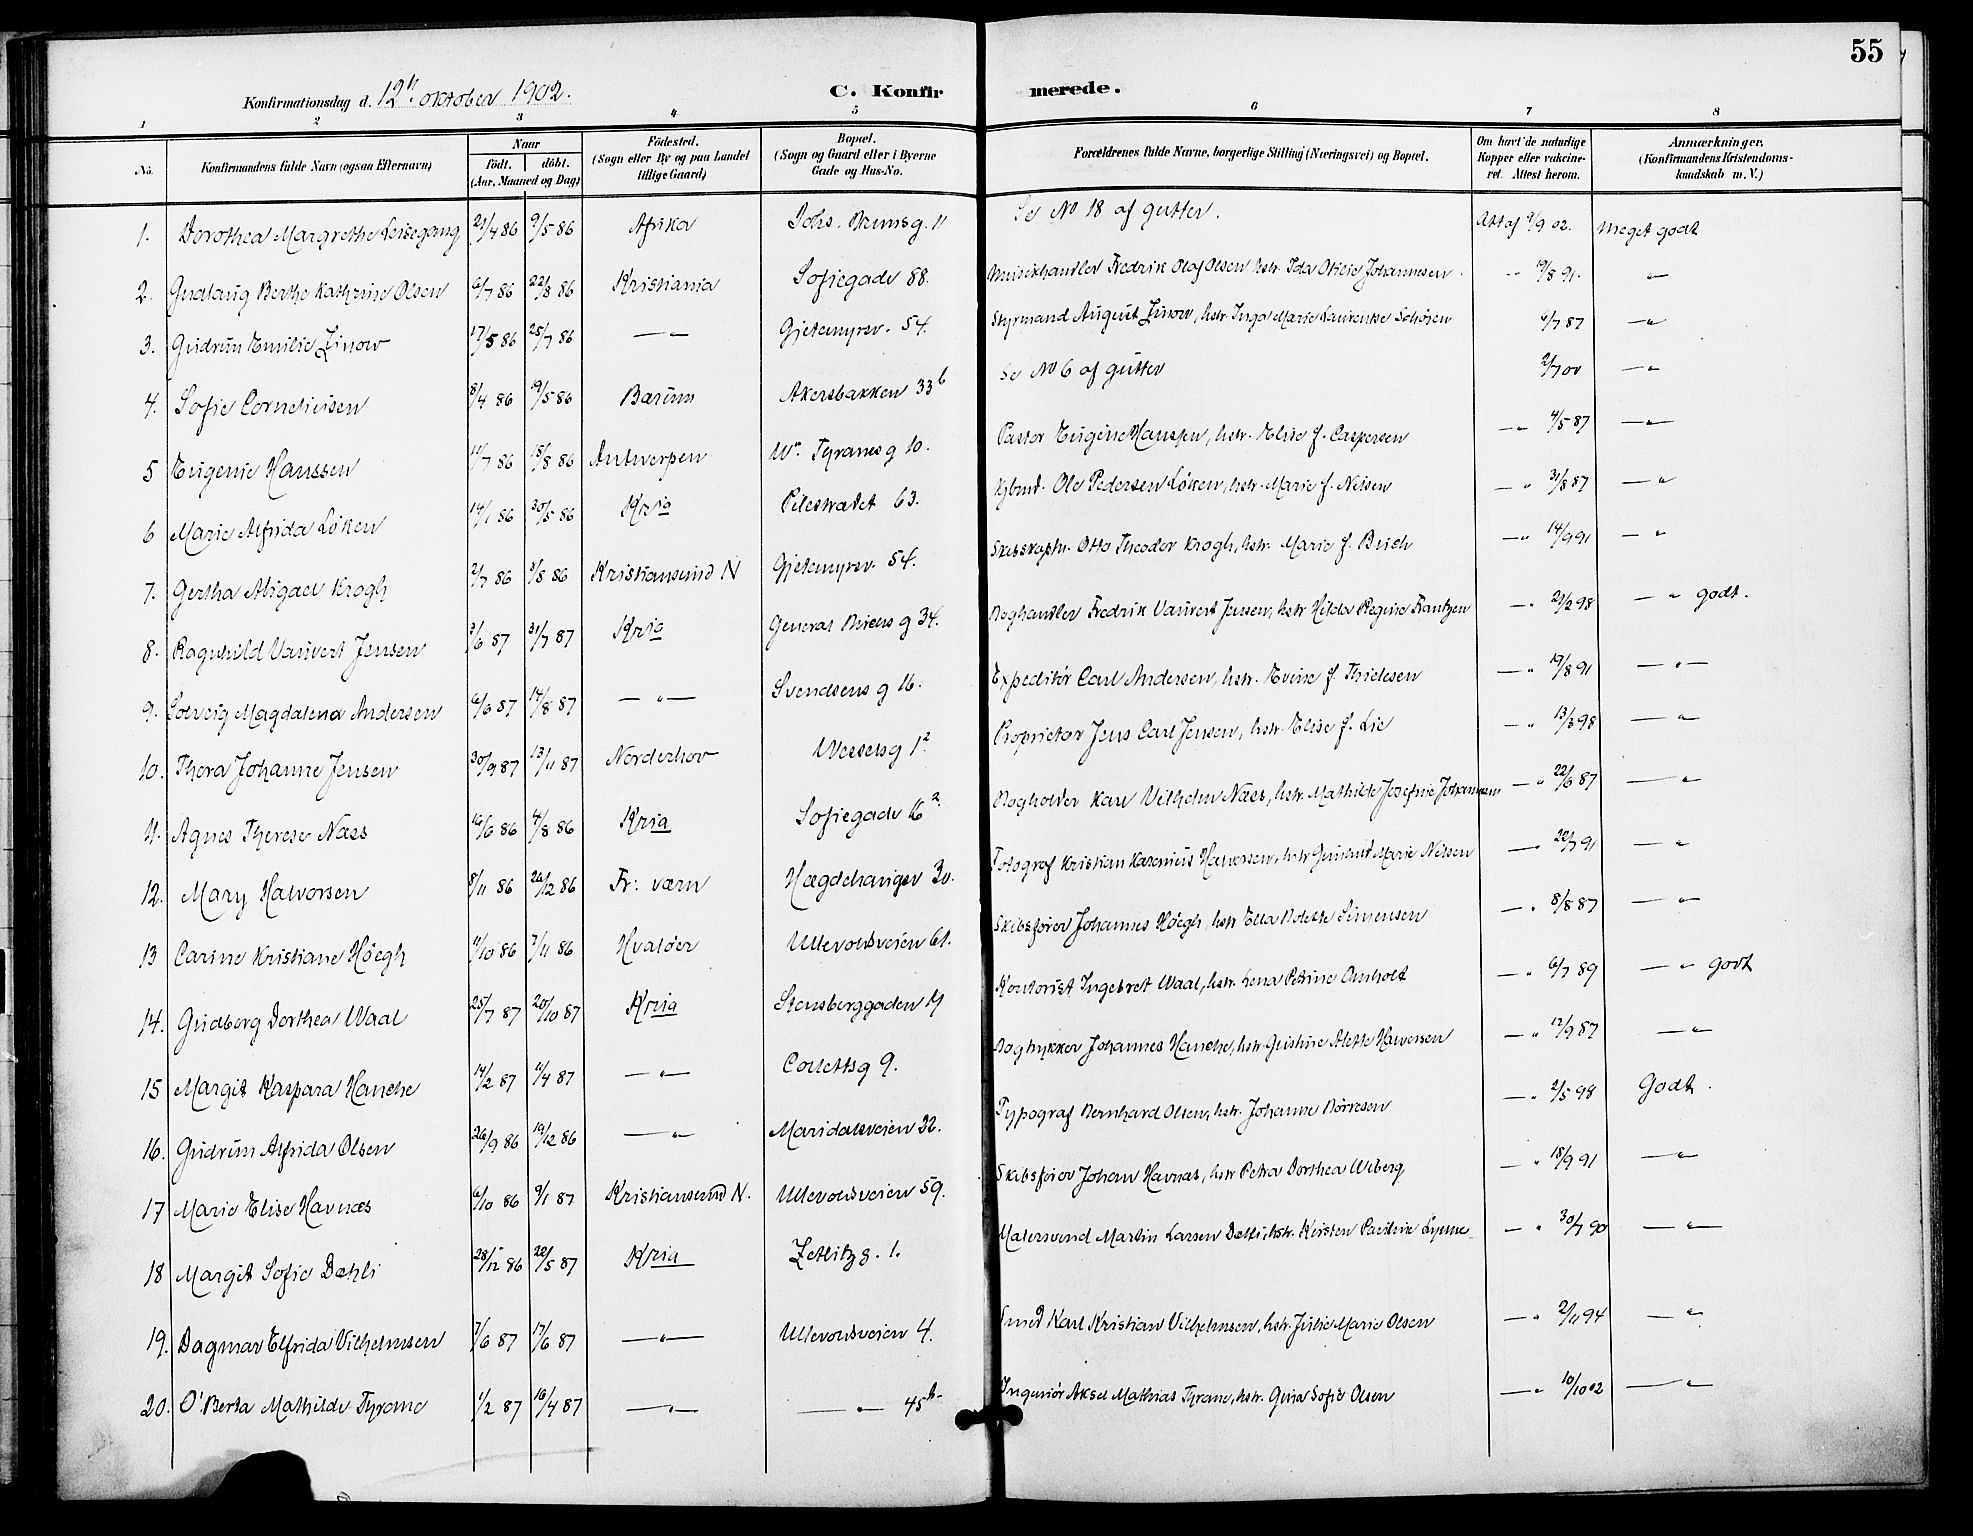 55
Konfirmationsdag d. 12te oktober 1902.
C. Konfirmerede.
1 2 3 4 5 6 7 8
No. Konfirmandens fulde Navn (ogsaa Efternavn) Naar födt. döbt. (Aar, Maaned og Dag) Födested. (Sogn eller By og paa Landet tillige Gaard) Bopæl. (Sogn og Gaard eller i Byerne Gade og Hus-No. Forældrenes fulde Navne, borgerlige Stilling (Næringsvei) og Bopæl. Om havt de naturlige Kopper eller vakcineret. Attest herom. Anmærkninger. (Konfirmandens Kristendomskundskab m. V.)
1. Dorothea Margrethe Leisegang 21/4 86 9/5 86 Afrika Johs. Brunsg. 11 Se No 18 af gutter. Att af 9/9 02. Meget godt
2. Gudlaug Berthe Kathrine Olsen 6/7 86 22/8 86 Kristiania Sofiegade 88. Musikhandler Fredrik Olaf Olsen, hstr. Ida Otilie Johannesen - " 19/8 91. "
3. Gudrun Emilie Linow 17/5 86 25/7 86 — " — Gjetemyrsv. 54. Styrmand August Linow, hstr. Inga Marie Laurentse Schöien 6/7 87 — "
4. Sofie Corneliusen 8/4 86 19/5 86 Bærum Akersbakken 33b Se No 6 af gutter 2/7 00 — "
5 Eugenie Hanssen 11/7 86 15/8 86 Antwerpen Wm Tyranesg 10. Pastor Eugene Hanssen, hstr. Elise f. Caspersen — " 4/5 87 — "
6 Marie Alfrida Löken 14/1 86 30/5 86 Kria Pilestrædet 63. Kjbmd. Ole Pedersen Löken, hstr. Marie f. Nilsen — " 31/8 87 — "
7. Gertha Abigael Krogh 2/7 86 3/8 86 Kristiansund N Gjetemyrsv. 54. Skibskaptn. Otto Theodor Krogh, hstr. Marie f. Buch — " 14/9 91 — "
8. Ragnhild Vauvert Jensen 3/6 87 31/7 87 Kria General Birchs g 34. Boghandler Fredrik Vauvert Jensen, hstr Hilda Regine Frantzen — " 21/2 98 — " godt.
9. Solveig Magdalena Andersen 6/6 87 14/8 87 — " — Svendsens g 16. Expeditör Carl Andersen, hstr. Evine f. Thielesen — " 19/8 91 — " —
10. Thora Johanne Jensen 30/9 87 13/11 87 Norderhov Wesselsg 1² Proprietær Jens Carl Jensen, hstr. Elise f. Lie — " 13/3 98 — "
11. Agnes Therese Næss 16/6 86 4/8 86 Kria Sofiegade 16². Bogholder Karl Vilhelm Næss, hstr. Mathilde Josefine Johannesen — " 22/6 87 — "
12. Mary Halvorsen 8/11 86 26/12 86 Fr: værn Hægdehaugsv 30. Fotograf Kristian Karenius Halvorsen, hstr Gunhild Marie Nilssen — " 22/7 91 — "
13 Carine Kristiane Höegh 11/10 86 7/11 86 Hvalöer Ullevoldsveien 61. Skibsförer Johannes Höegh, hstr Ella Bolette Simensen — " 8/8 87 — "
14. Gudborg Dorthea Waal 25/7 87 20/10 87 Kria Stensberggaden 17 Kontorist Ingebret Waal, hstr. Lena Petrine Omholt — " 6/7 89 — " godt
15 Margit Kaspara Hanche 14/2 87 11/4 87 — " — Colletts g 9. Bogtrykker Johannes Hanche, hstr. Gustine Alette Halvorsen — " 12/9 87 — "
16. Gudrun Alfrida Olsen 26/9 86 19/12 86 — " — Maridalsveien 22. Typograf Bernhard Olsen, hstr. Johanne Börresen — " 2/5 98 Godt.
17 Marie Elise Havnæs 6/10 86 9/1 87 Kristiansund N. Ullevoldsveien 59. Skibsförer Johan Havnæs, hstr Petra Dorthea Wiberg — " 18/9 91 — "
18 Margit Sofie Dæhli 28/12 86 22/5 87 Kria Zetlitz g. 1. Malersvend Martin Larsen Dæhli, hstr. Kirsten Pauline — " 30/7 90 — "
19. Dagmar Elfrida Vilhelmsen 7/6 87 17/6 87 — " — Ullevoldsveien 4. Smed Karl Kristian Vilhelmsen, hstr. Julie Marie Olsen — " 2/11 94 — "
20. O'Berta Mathilde Tyrane 1/2 87 16/4 87 — " — — " — 45b Ingeniör Aksel Mathias Tyrane, hstr. Gina Sofie Olsen — " 10/10 02 — "